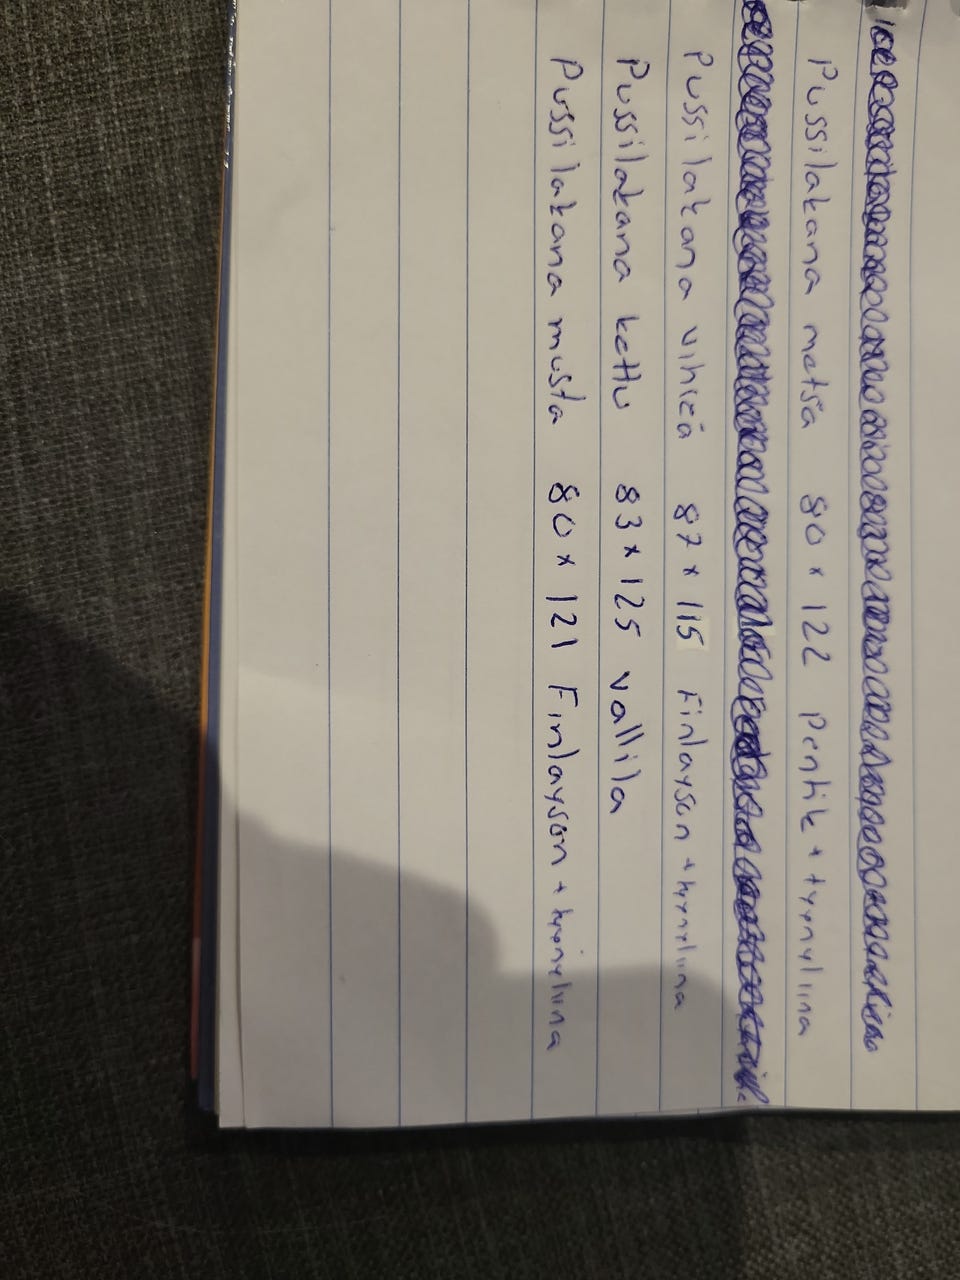 Pussilakana metsä 80 x 122 Pentik + tyynyliina
Pussilakana vihreä 87 x 115 Finlayson + tyynyliina
Pussilakana kettu 83 x 125 Vallila
Pussilakana musta 80 x 121 Finlayson + tyynyliina